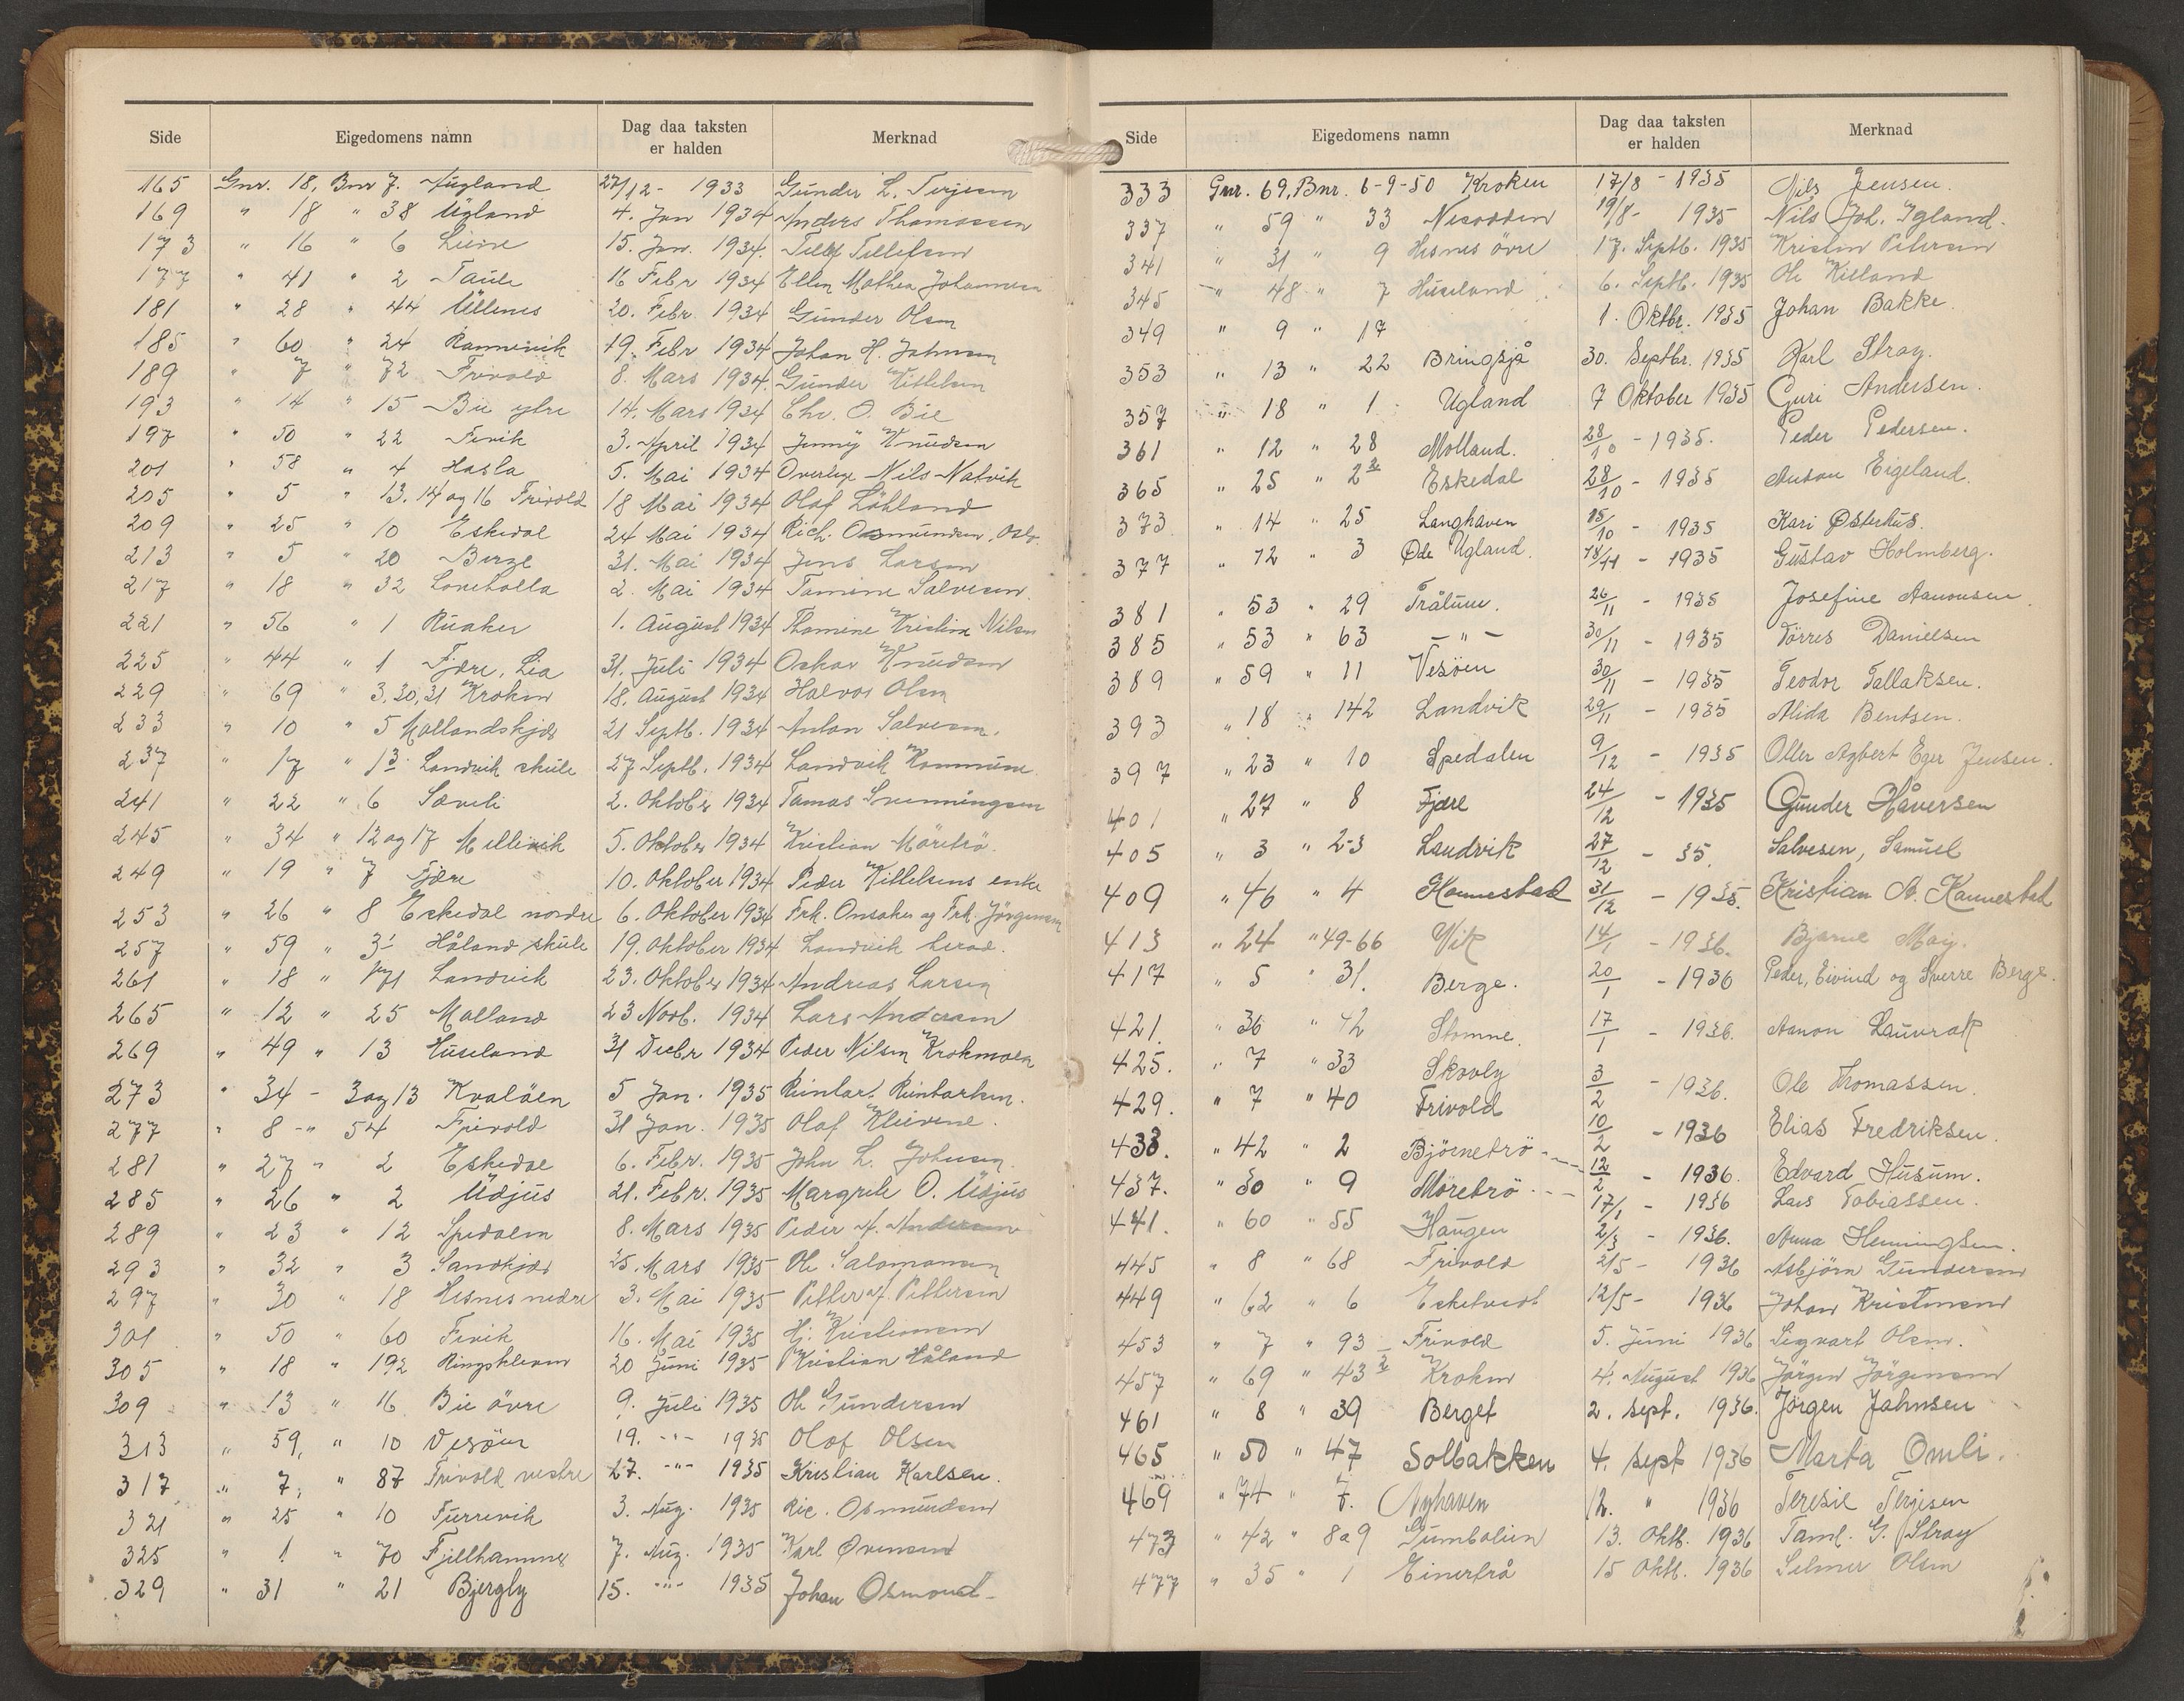 Side Eigedomens namn Dag daa taksten er halden Merknad
165 Gnr. 18, Bnr 7. Augland 27/12 - 1933 Gunder L. Terjesen
169 " 18 " 38 Ugland 4. Jan 1934 Anders Thomassen
173 " 16 " 6 15. Jan. 1934. Tellef Tellefsen
177 " 41 " 2 Taule 16 Febr 1934 Ellen Mathea Johannesen
181 " 28 " 44 Ullenes 20. Febr. 1934 Gunder Olsen
185 " 60 " 24 Rannevik 19. Febr 1934 Johan H. Johnsen
189 " 7 " 72 Frivold 8. Mars 1934. Gunder Kittelsen
193 " 14 " 15 Bie ytre 14. Mars 1934 Chr. O. Bie
197 " 50 " 22 Fevik 3. April 1934 Jenny Knudsen
201 " 58 " 4 Hasla 5. Mai 1934 Overlege Nils Natvik
205 " 5 " 13. 14 og 16 Frivold 18 Mai 1934 Olaf Løhland
209 " 25 " 10 Eskedal 24 Mai 1934 Rich. Osmundsen, Oslo.
213 " 5 " 20 Berge 31. Mai 1934 Jens Larsen
217 " 18 " 32 2. Mai 1934 Tamine Salvesen.
221 " 56 " 1 Ruaker 1. August 1934 Thomine Kristine Nilsen
225 " 44 " 1 Fjære, Lia 31. Juli 1934 Oskar Knudsen
229 " 69 " 3, 30, 31 Kroken 18. August 1934 Halvor Olsen
233 " 10 " 5 Mollandskjær 21 Septb. 1934 Anton Salvesen.
237 " 17 " 13 Landvik skule 27 Septb. 1934 Landvik Kommune
241 " 22 " 6 Sæveli 2. Oktober 1934 Tomas Svenningsen
245 " 34 " 12 og 17 Mellinvik 5. Oktober 1934 Kristian Mörebrö.
249 " 19 " 7 Fjære 10. Oktober 1934 Peder Kittelsens enke
253 " 26 " 8 Eskedal nordre 6. Oktober 1934 Frk. Omsaker og Frk. Jörgensen
257 " 59 " 3' Håland skule 19. Oktober 1934 Landvik herad.
261 " 18 " 171 Landvik 23. Oktober 1934 Andreas Larsen
265 " 12 " 25 Molland 23 Novb. 1934 Lars Andersen
269 " 49 " 13 Huseland 31 Decbr 1934 Peder Nilsen Krokmoen
273 " 34 - 3 og 13 Kvaløen 5 Jan. 1935 Reinlart Reinlartsen.
277 " 8 - " 54 Frivold 31 Jan. 1935 Olaf Kleivene.
281 " 27 " 2 Eskedal 6. Febr. 1935 John L. Johnsen.
285 " 26 " 2 Udjus 21. Febr. 1935 Margrete O. Udjus
289 " 23 " 12 Spedalen 8. Mars 1935 Peder A. Andersen
293 " 32 " 3 Sandkjær 25. Mars 1935 Ole Salomonsen
297 " 30 " 18 Hesnes nedre 3. Mai 1935 Petter Pettersen
301 " 50 " 60 Fevik 16. Mai 1935 Hj. Kristensen
305 " 18 " 192 Ringskleven 20 Juni 1935 Kristian Håland
309 " 13 " 16 Bie övre 9. Juli 1935 Ole Gundersen
313 " 59, " 10 Vesöen 19. -"- 1935 Olaf Olsen
317 " 7, " 87 Frivold vestre 27. -"- 1935 Kristian Karlsen.
321 " 25 " 10 Furrevik 3. Aug. 1935 Ric. Osmundsen
325 " 1 " 70 Fjellhammer 7. Aug. 1935 Karl Evensen
329 " 31 " 21 Bjergly 15. -"- 1935 Johan Osmond
Side Eigedomens namn Dag daa taksten er halden Merknad
333 Gnr. 69, Bnr. 6-9-50 Kroken 17/8 - 1935 Nils Jensen.
337 " 59 " 33 Nesodden 19/8 - 1935 Nils Joh. Igland.
341 " 31 " 9 Hesnes övre 17. Septb. 1935 Kristen Petersen
345 " 48 " 7 Huseland 6. Septb. 1935 Ole Killand
349 " 9 " 17 1. Oktbr. 1935 Johan Bakke.
353 " 13 " 22 Bringsjå 30. Septbr. 1935 Karl Stray.
357 " 18 " 1 Ugland 7 Oktober 1935 Guri Andersen.
361 " 12 " 28 Molland. 28/10 - 1935. Peder Pedersen.
365 " 25 " 2 Eskedal 28/10 - 1935 Anton Eigeland.
373 " 14 " 25 Langhaven 15/10 - 1935 Kari Østerhus.
377 " 12 " 3 Øde Ugland. 18/11 - 1935 Gustav Holmberg.
381 " 53 " 29 Trålum. 26/11 - 1935 Josefine Aanonsen.
385 " 53 " 63 - " - 30/11 - 1935 Törres Danielsen
389 " 59 " 11 Vesöen 30/11 - 1935 Teodor Tallaksen.
393 " 18 " 142 Landvik 29/11 - 1935 Alida Bentsen.
397 " 23 " 10 Spedalen 9/12 - 1935 Oller Agbert Eger Jensen.
401 " 27 " 8 Fjære 24/12 - 1935 Gunder Håversen
405 " 3 " 2-3 Landvik 27/12 - 35. Salvesen, Samuel
409 " 46 " 4 Kannestad 31/12 - 1935. Kristian A. Kannestad
413 " 24 " 49-66 Vik 14/1 - 1936. Bjarne Moy.
417 " 5 " 31. Berge. 20/1 - 1936 Peder, Eivind og Sverre Berge.
421. " 36 " 42 Stomne. 17/1 - 1936. Aanon Lauvrak
425. " 7 " 33 Skovly 3/2 - 1936. Ole Thomassen.
429. " 7 " 40 Frivold 10/2 - 1936 Elias Fredriksen.
433. " 42 " 2 Björnebrö 12/2 - 1936. Edvard Husum.
437. " 30 " 9 Mörebrö 17/1 - 1936 Lars Tobiassen.
441. " 60 " 55 Haugen 2/3 - 1936. Anna Henningsen.
445 " 8 " 68 Frivold 2/5 - 1936 Asbjörn Gundersen
449 " 62 " 6 Esketvedt 12/5 - 1936 Johan Kristensen
453 " 7 " 93 Frivold 5. Juni 1936 Sigvart Olsen.
457 " 69 " 43 Kroken 4. August 1936 Jörgen Jörgensen
461 " 8 " 39 Berget 2. sept. 1936. Jörgen Jahnsen
465 " 50 " 47 Solbakken 4. sept 1936 Marta Omli.
469 " 74 " 7. Nyhaven 12. " 1936 Teresie Terjesen
473 " 42 " 8 a 9 13. Oktb. 1936 Taml. G. Stray
477 " 35 " 1 Einerbrå 15 Oktb. 1936 Selmer Olsen